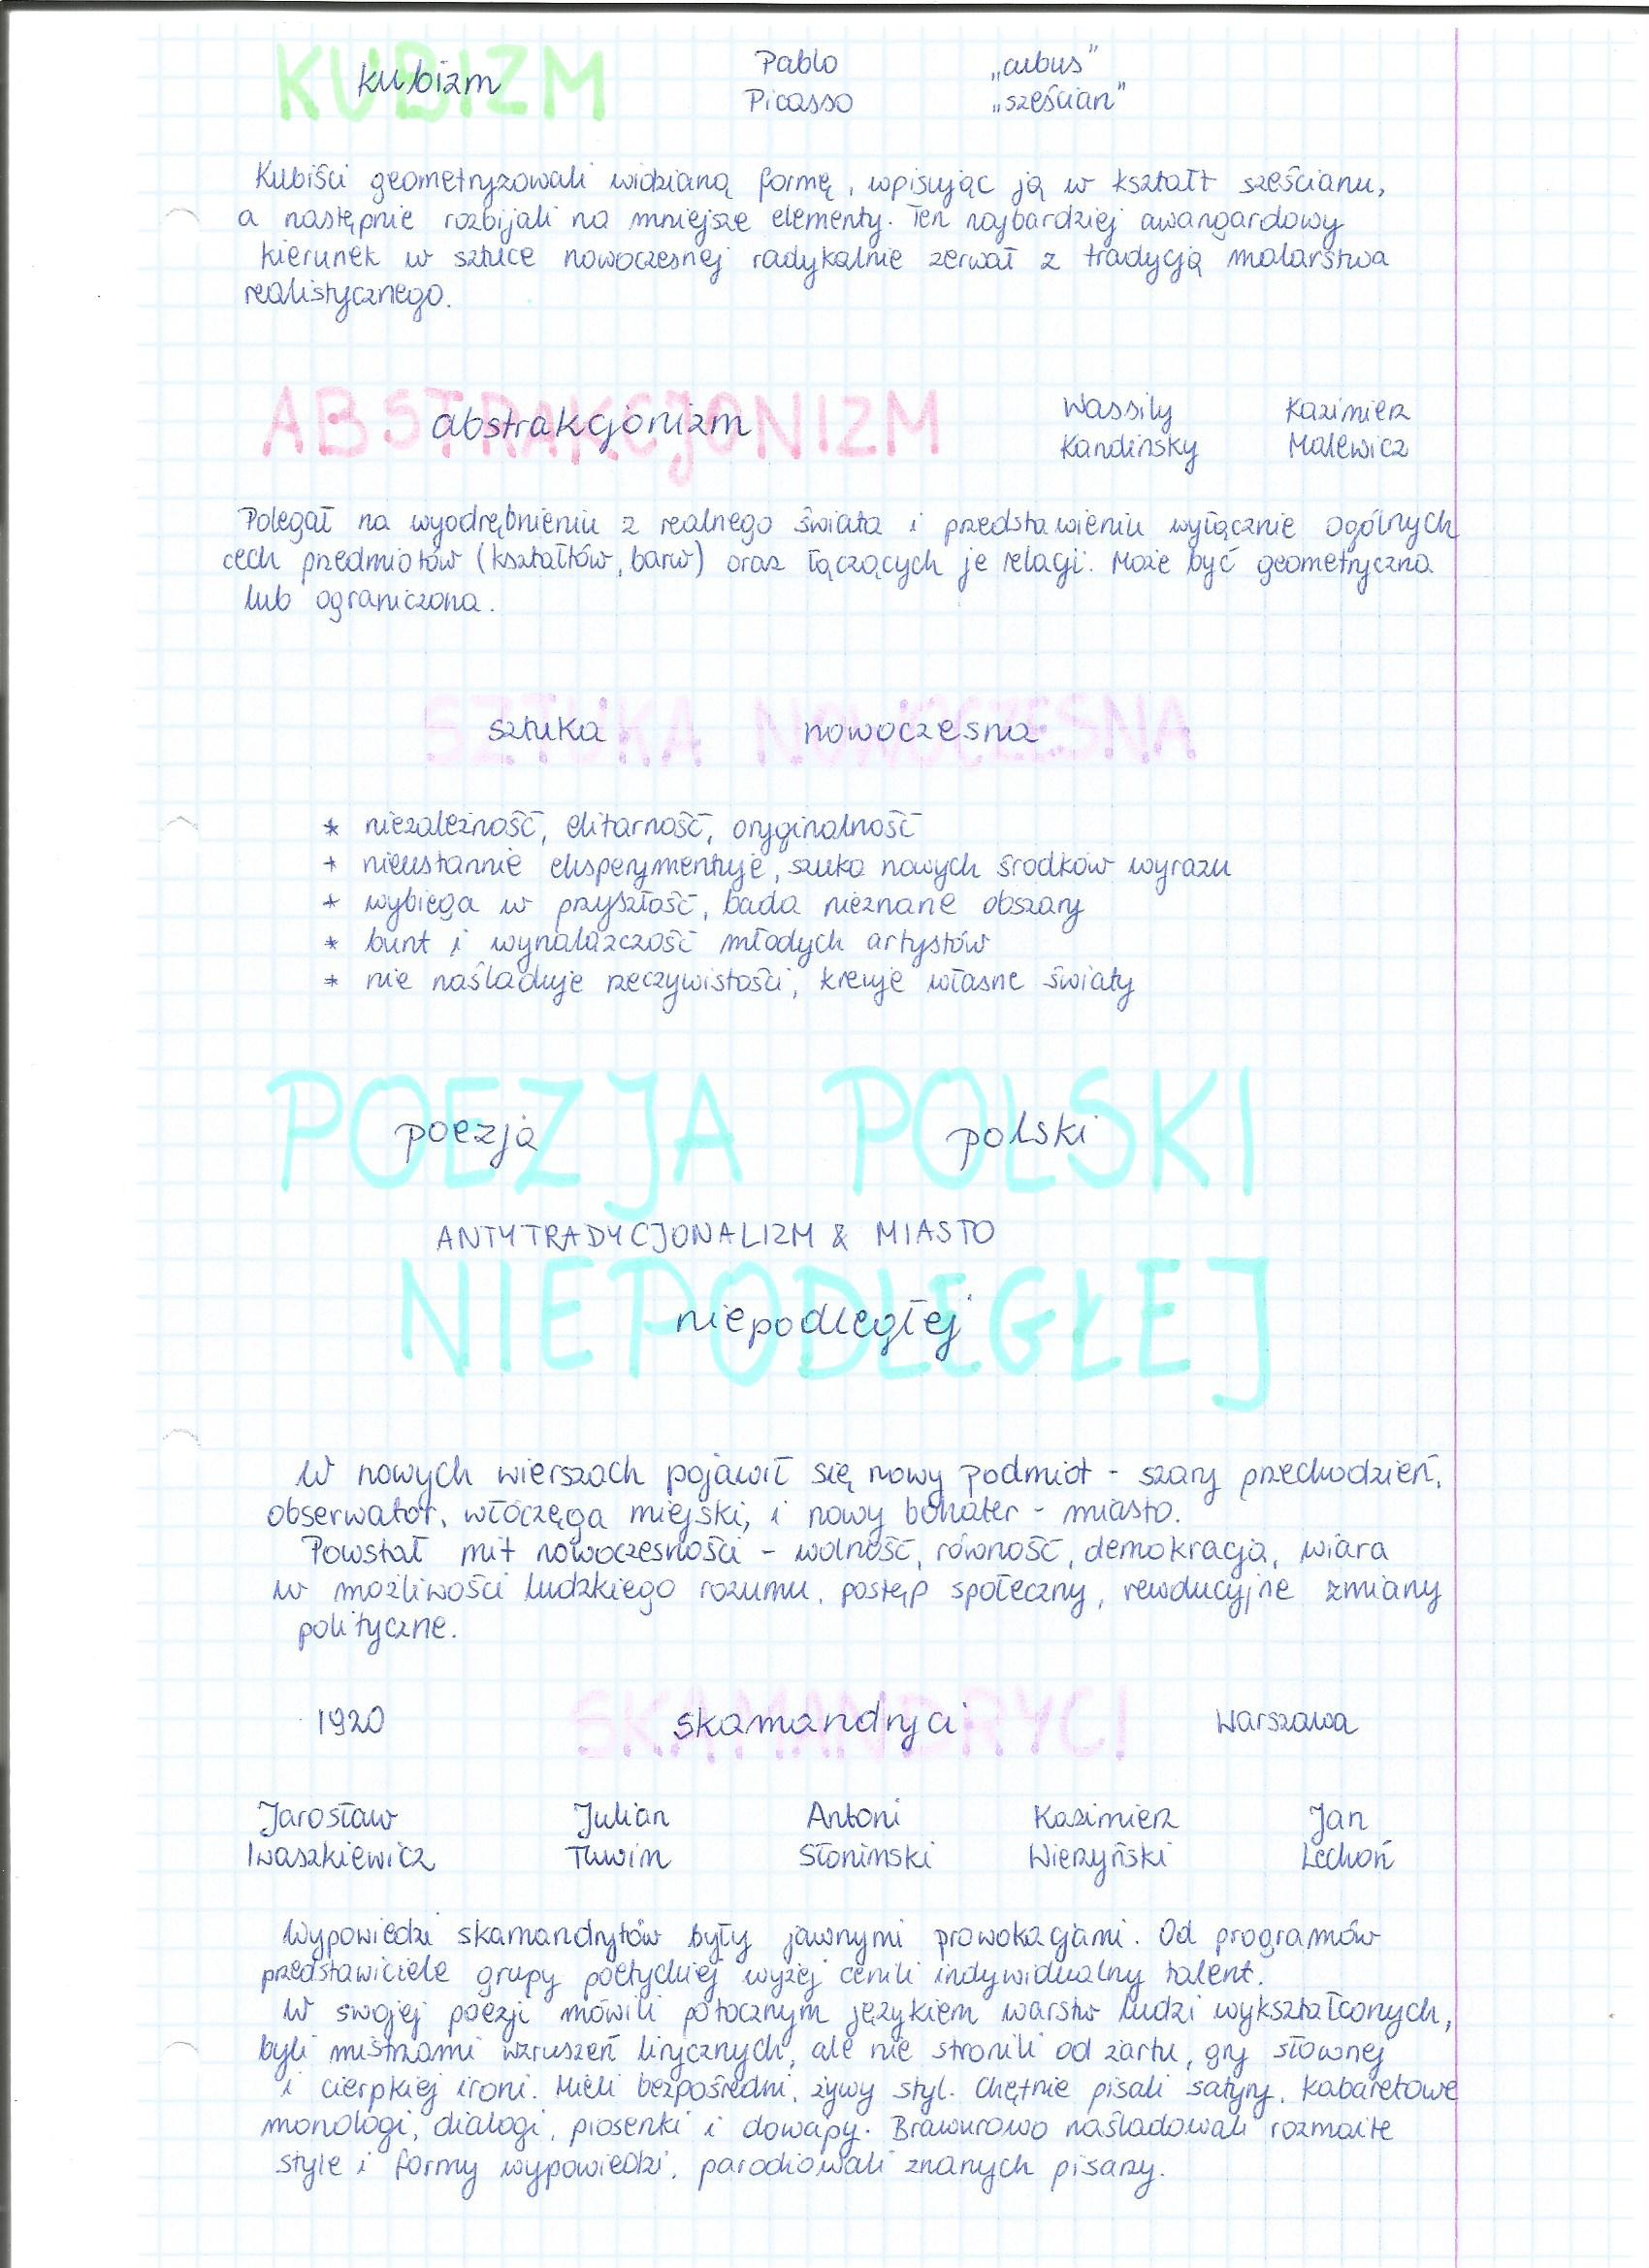 KUBIZM
kubizm
Pablo „cubus"
Picasso „sześcian"
Kubiści geometryzowali widzianą formę, wpisując ją w kształt sześcianu,
a następnie rozbijali na mniejsze elementy. Ten najbardziej awangardowy
kierunek w sztuce nowoczesnej radykalnie zerwał z tradycją malarstwa
realistycznego.
ABSTRAKCJONIZM
abstrakcjonizm
Wassily Kazimierz
Kandinsky Malewicz
Polegał na wyodrębnieniu z realnego świata i przedstawieniu wyłącznie ogólnych
cech przedmiotów (kształtów, barw) oraz łączących je relacji. Może być geometryczna
lub ograniczona.
SZTUKA NOWOCZESNA
sztuka nowoczesna
* niezależność, elitarność, oryginalność
* nieustannie eksperymentuje, szuka nowych środków wyrazu
* wybiega w przyszłość, bada nieznane obszary
* bunt i wynalazczość młodych artystów
* nie naśladuje rzeczywistości, kreuje własne światy
POEZJA POLSKI
poezja polski
ANTYTRADYCJONALIZM & MIASTO
NIEPODLEGŁEJ
niepodległej
W nowych wierszach pojawił się nowy podmiot - szary przechodzień,
obserwator, włóczęga miejski, i nowy bohater - miasto.
Powstał mit nowoczesności - wolność, równość, demokracja, wiara
w możliwości ludzkiego rozumu, postęp społeczny, rewolucyjne zmiany
polityczne.
SKAMANDRYCI
1920 skamandryci Warszawa
Jarosław Julian Antoni Kazimierz Jan
Iwaszkiewicz Tuwim Słonimski Wierzyński Lechoń
Wypowiedzi skamandrytów były jawnymi prowokacjami. Od programów
przedstawiciele grupy poetyckiej wyżej cenili indywidualny talent.
W swojej poezji mówili potocznym językiem warstw ludzi wykształconych,
byli mistrzami wzruszeń lirycznych, ale nie stronili od żartu, gry słownej
i cierpkiej ironi. Mieli bezpośredni, żywy styl. Chętnie pisali satyry, kabaretowe
monologi, dialogi, piosenki i dowcipy. Brawurowo naśladowali rozmaite
style i formy wypowiedzi, parodiowali znanych pisarzy.